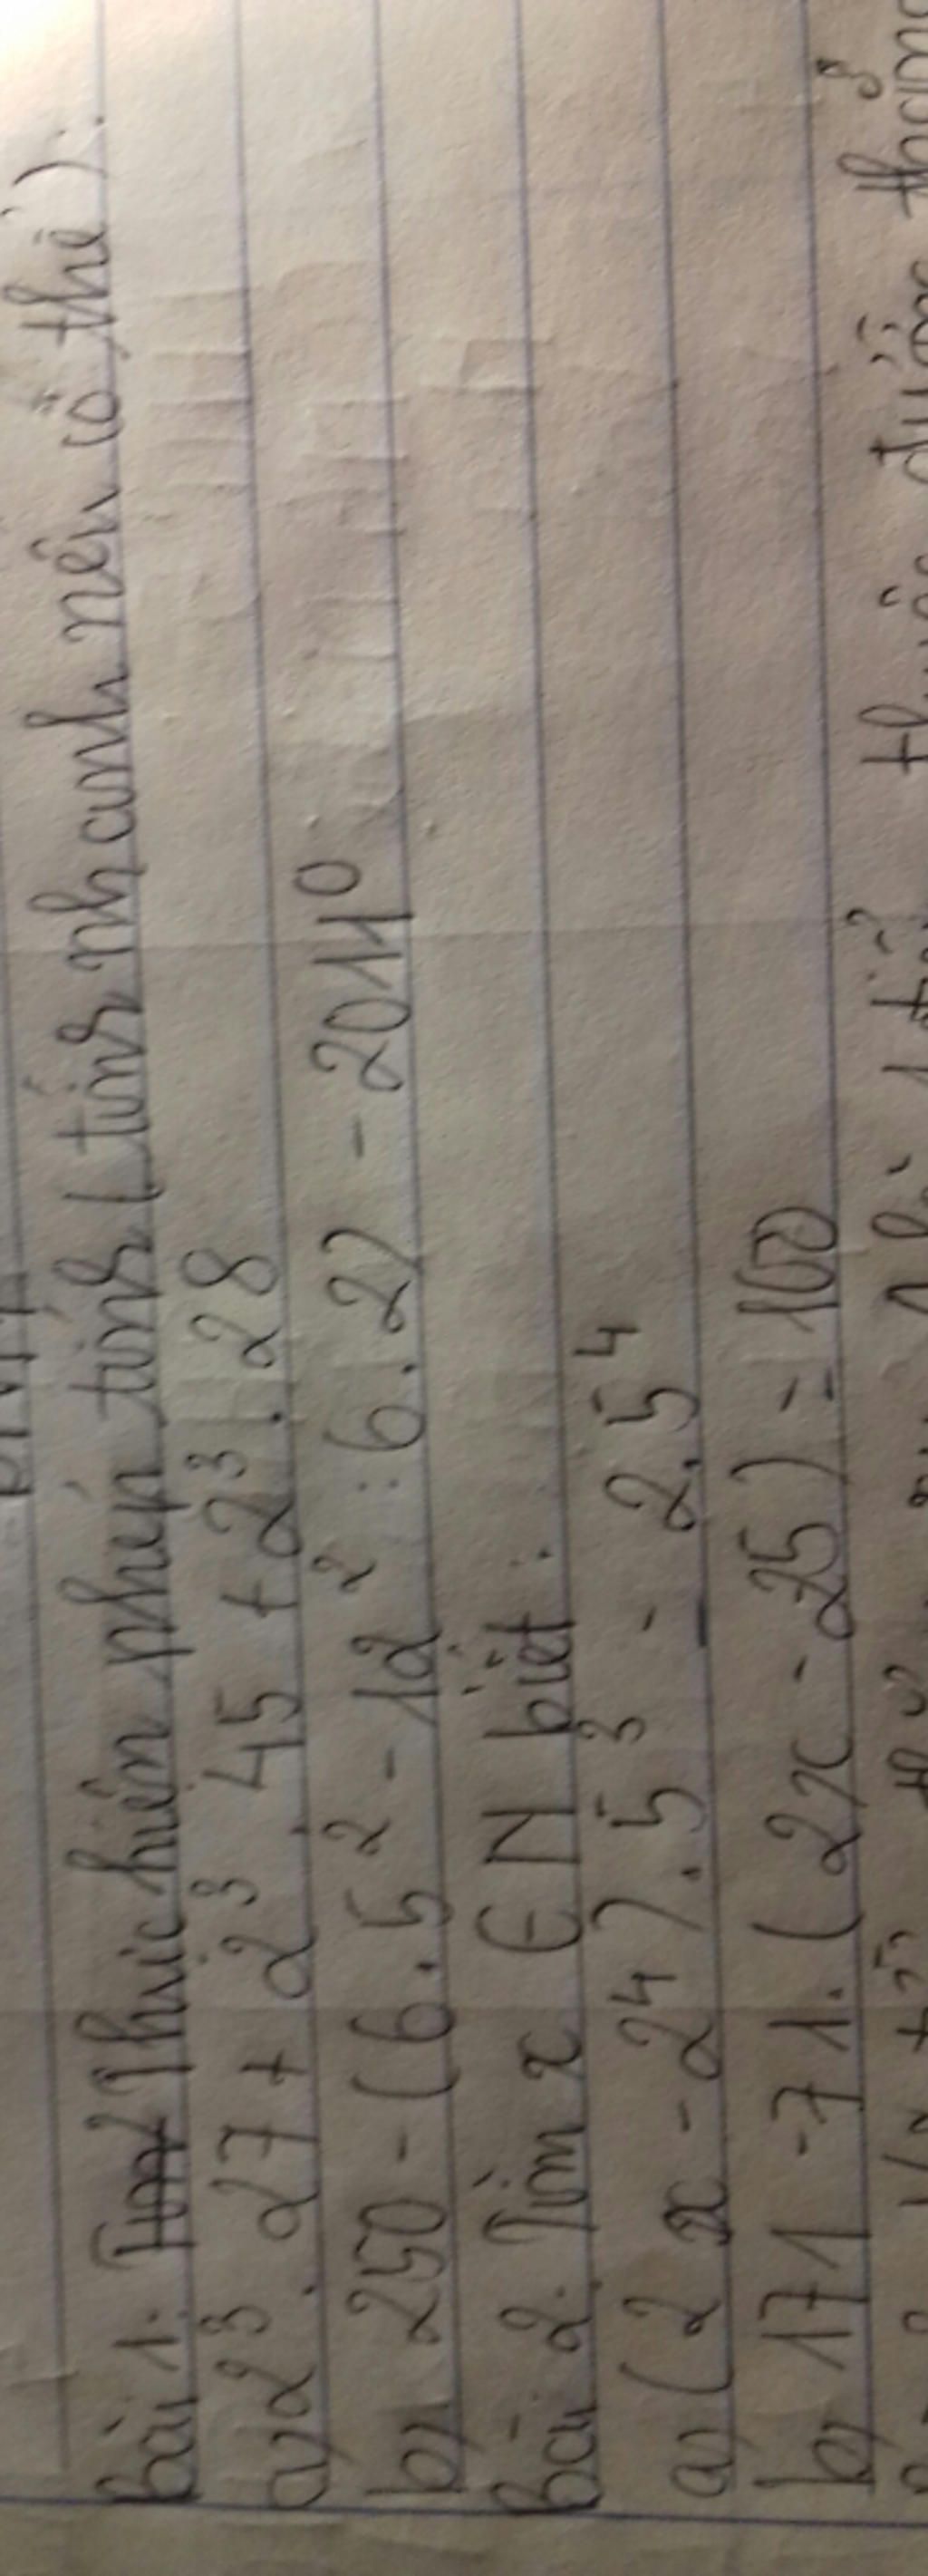 Bài 1: Thực hiện phép tính (tính nhanh nếu có thể).
a, 2³. 27 + 2³. 45 + 2³. 28
b, 250 - (6. 5² - 12² : 6. 2) - 2011⁰
Bài 2. Tìm x ∈ N biết :
a, (2x - 2⁴). 5³ = 2. 5⁴
b, 171 - 71. (2x - 25) = 100
thuộc được thẳng